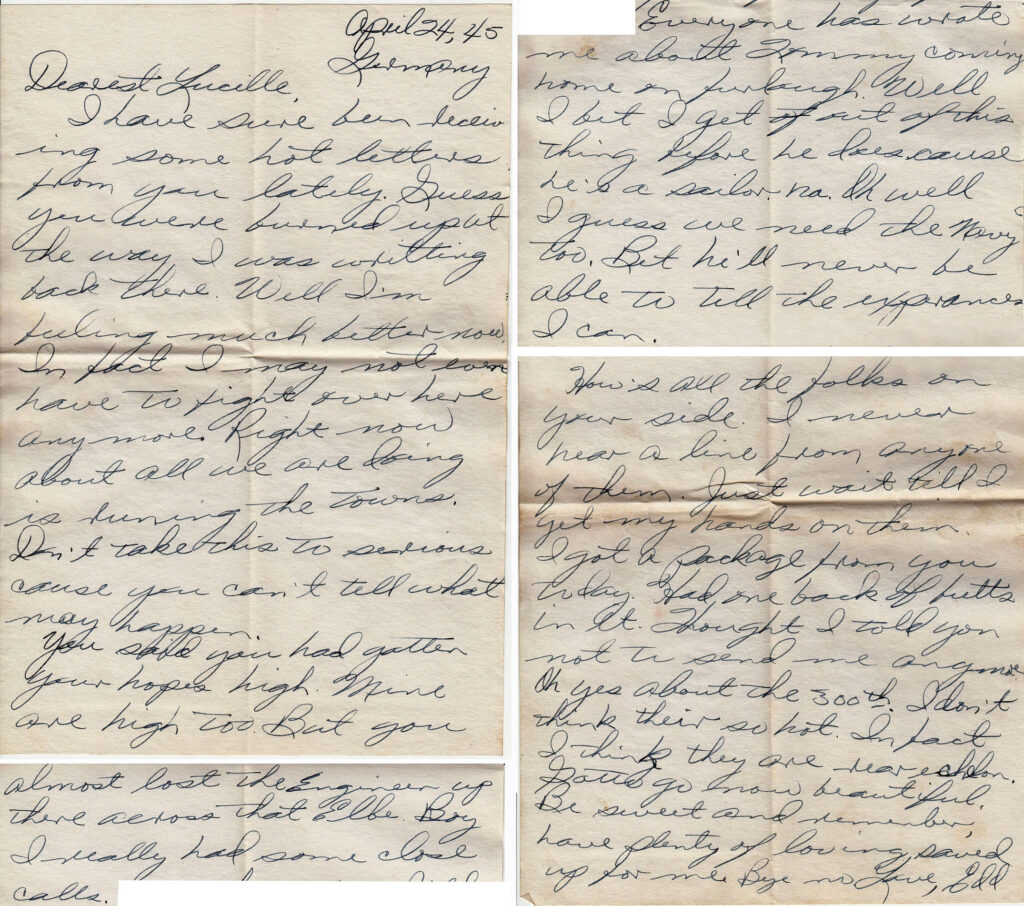 April 24, 45
Germany
Dearest Lucille,
I have sure been receiv
ing some hot letters
from you lately. Guess
you were burned up at
the way I was writting
back there. Well I'm
feeling much better now.
In fact I may not even
have to fight over here
any more. Right now
about all we are doing
is runing the towns.
Don't take this to serious
cause you can't tell what
may happen.
You said you had gotten
your hopes high. Mine
are high too. But you
almost lost the Engineer up
there across that Elbe. Boy
I really had some close
calls.
Everyone has wrote
me about Tommy coming
home on furlough. Well
I bet I get out of this
thing before he does, cause
he's a sailor. ha. Oh well
I guess we need the Navy
too. But he'll never be
able to tell the experances
I can.
How's all the folks on
your side. I never
hear a line from anyone
of them. Just wait till I
get my hands on them.
I got a package from you
today. Had one back of butts
in it. Thought I told you
not to send me anymore.
Oh yes about the 300th. I don't
think their so hot. In fact
I think they are rear echlon.
Gotta go now beautiful.
Be sweet and remember,
have plenty of loving saved
up for me. Bye no Love, Edd